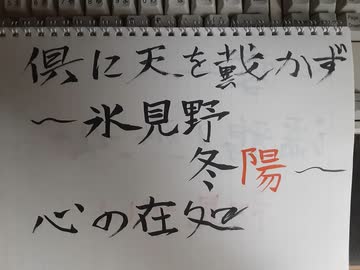 倶に天を戴かず
〜氷見野
冬陽〜
心の在処